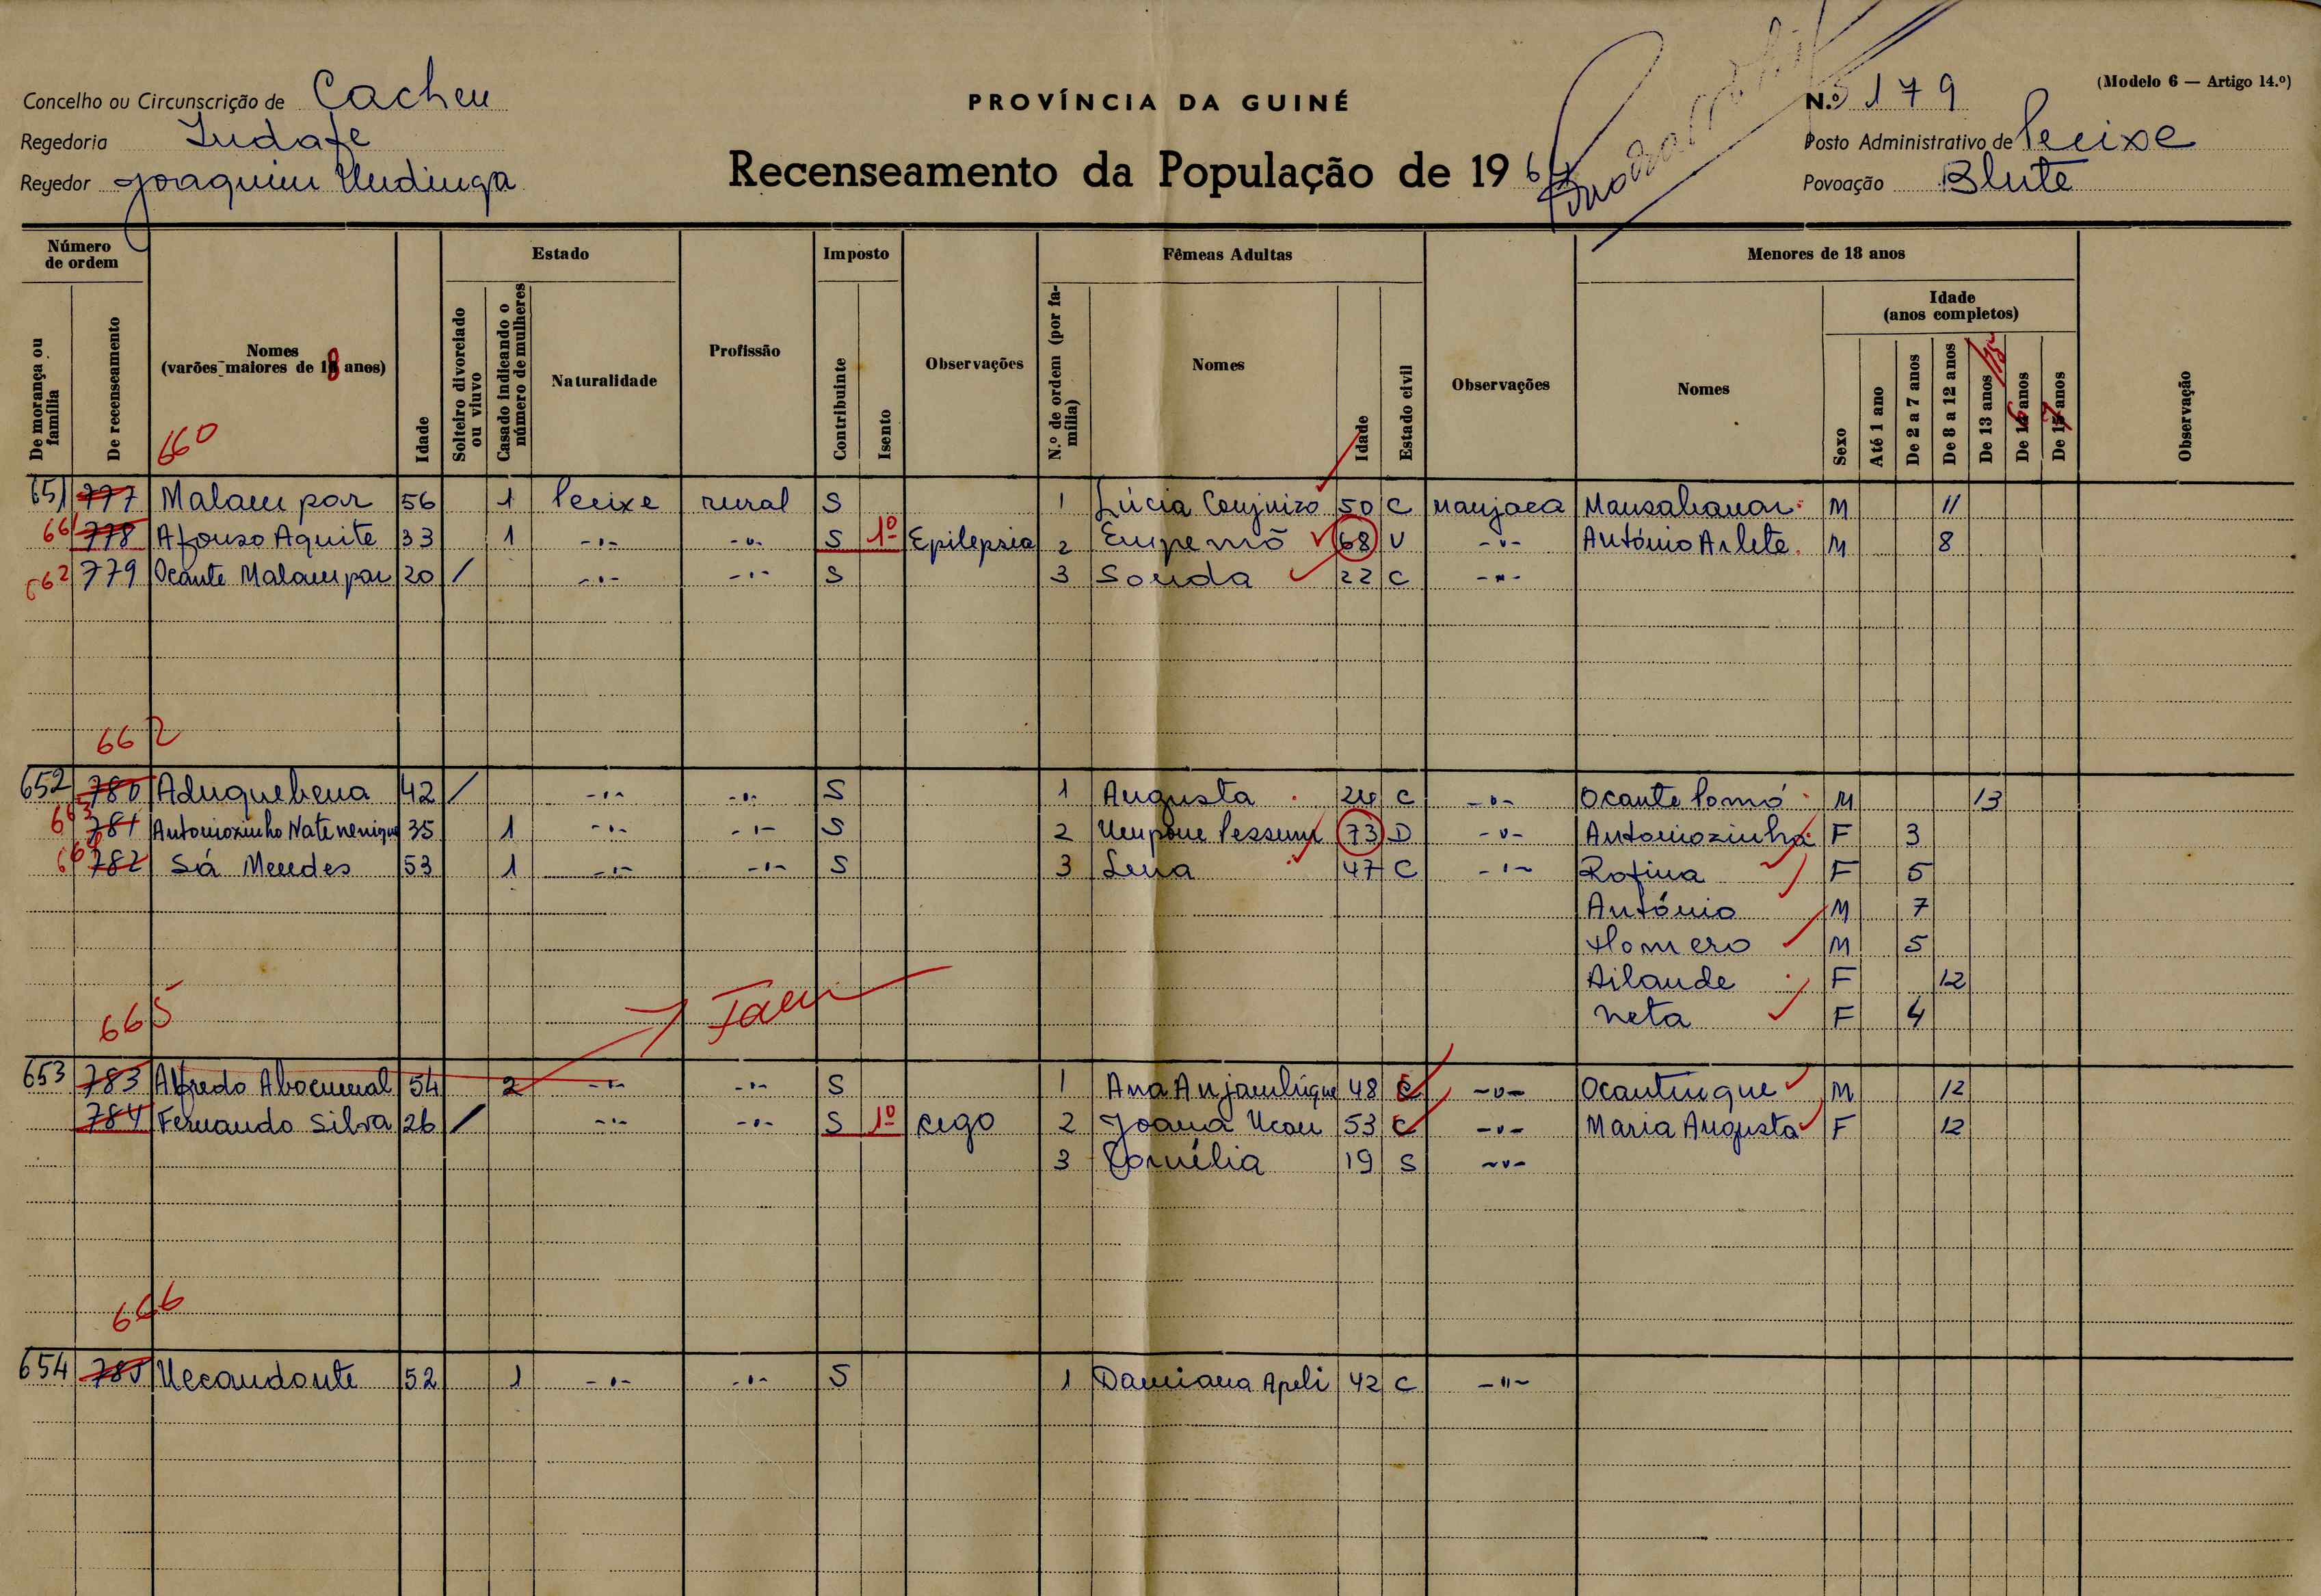 Concelho ou Circunscrição de Cacheu
Regedoria Iudafe
Regedor Joaquim Undinga
PROVÍNCIA DA GUINÉ
Recenseamento da População de 196
(Modelo 6 — Artigo 14.º)
N.º 179
Posto Administrativo de Pecixe
Povoação Blute
Número de ordem
De morança ou família
De recenseamento
Nomes
(varões maiores de 18 anos)
Idade
Estado
Solteiro divorciado ou viuvo
Casado indicando o número de mulheres
Naturalidade
Profissão
Imposto
Contribuinte
Isento
Observações
Fêmeas Adultas
N.º de ordem (por família)
Nomes
Idade
Estado civil
Observações
Menores de 18 anos
Nomes
Idade
(anos completos)
Sexo
Até 1 ano
De 2 a 7 anos
De 8 a 12 anos
De 13 anos 15
De 16 anos
De 17 anos
Observação
660
651 777 Malam par 56 1 Pecixe rural S 1 Lúcia 50 C manjaca M 11
661 778 Afonso Aquite 33 1 -"- -"- S 1º Epilepsia 2 68 V -"- António Arlete M 8
662 779 Ocante Malam par 20 / -"- -"- S 3 Sonda 22 C -"-
662
652 780 Aduquebena 42 / -"- -"- S 1 Augusta 24 C -"- Ocante Pomó M 13
663 781 Antoniozinho Natenenique 35 1 -"- -"- S 2 73 D -"- Antoniozinha F 3
664 782 Sá Mendes 53 1 -"- -"- S 3 Lena 47 C -"- Rofina F 5
António M 7
Homero M 5
Ailande F 12
Neta F 4
665
653 783 Alfredo 54 2 -"- -"- S 1 Ana 48 C -"- Ocantingue M 12
784 Fernando Silva 26 / -"- -"- S 1º cego 2 Joana Ucau 53 C -"- Maria Augusta F 12
3 Cornélia 19 S -"-
666
654 785 Uecandante 52 1 -"- -"- S 1 Damiana Apeli 42 C -"-